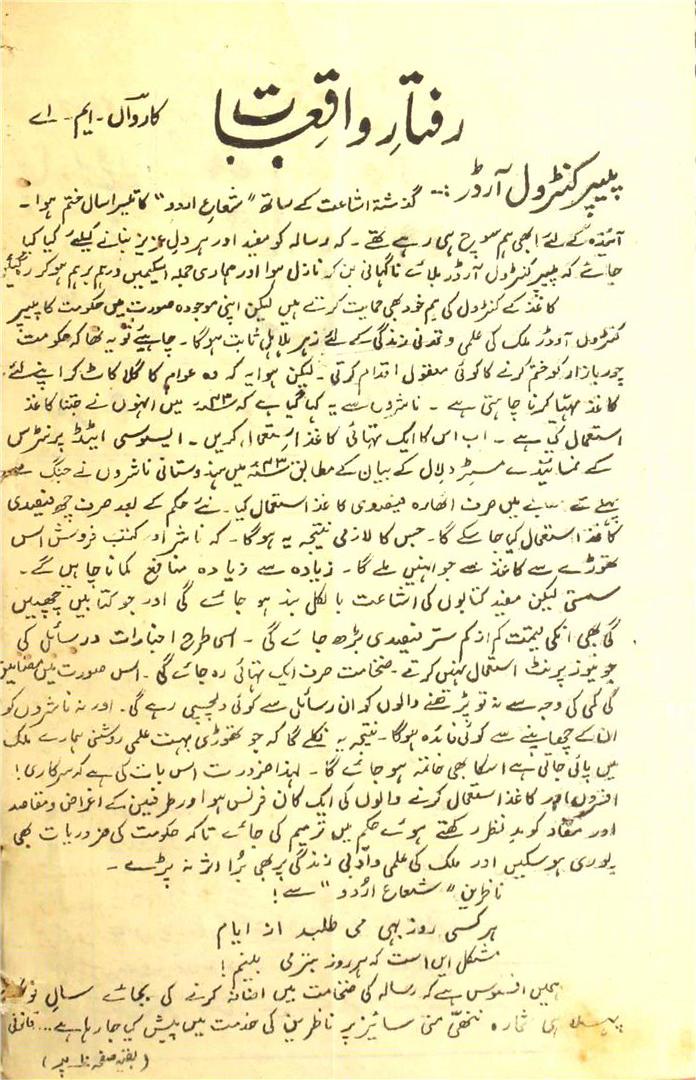 رفتارِ واقعات
کارواں - ایم - اے
پیپر کنٹرول آرڈر :-- گذشتہ اشاعت کے ساتھ "شعاعِ اردو" کا تیسرا سال ختم ہوا -
آئندہ کے لئے ابھی ہم سوچ ہی رہے تھے - کہ رسالہ کو مفید اور ہر دلعزیز بنانے کیلئے کیا کیا
جائے کہ پیپر کنٹرول آرڈر بلائے ناگہانی بن کر نازل ہوا اور ہماری جملہ اسکیمیں درہم برہم ہو کر رہ گئیں
کاغذ کے کنٹرول کی ہم خود بھی حمایت کرتے ہیں لیکن اپنی موجودہ صورت میں حکومت کا پیپر
کنٹرول آرڈر ملک کی علمی و تمدنی زندگی کے لئے زہر ہلاہل ثابت ہوگا - چاہیئے تو یہ تھا کہ حکومت
چور بازار کو ختم کرنے کا کوئی معقول اقدام کرتی - لیکن ہوا یہ کہ وہ عوام کا گلا کاٹ کر اپنے لئے
کاغذ مہیا کرنا چاہتی ہے - ناشروں سے یہ کہا گیا ہے کہ ۴۳ء میں انہوں نے جتنا کاغذ
استعمال کیا ہے - اب اس کا ایک تہائی کاغذ استعمال کریں - ایسوسی ایٹڈ پرنٹرس
کے نمائیندے مسٹر دلال کے بیان کے مطابق ۴۳ء میں ہندوستانی ناشروں نے جنگ سے
پہلے کے مقابلے میں صرف اٹھارہ فیصدی کاغذ استعمال کیا - نئے حکم کے بعد صرف چھ فیصدی
کاغذ استعمال کیا جا سکے گا - جس کا لازمی نتیجہ یہ ہوگا - کہ ناشر اور کتب فروش اس
تھوڑے سے کاغذ سے جو انہیں ملے گا - زیادہ سے زیادہ منافع کمانا چاہیں گے -
سستی لیکن مفید کتابوں کی اشاعت بالکل بند ہو جائے گی اور جو کتابیں چھپیں
گی بھی انکی قیمت کم از کم ستر فیصدی بڑھ جائے گی - اسی طرح اخبارات و رسائل کی
جو نیوز پرنٹ استعمال نہیں کرتے - ضخامت صرف ایک تہائی رہ جائے گی - اس صورت میں مضامین
گی کمی کی وجہ سے نہ تو پڑھنے والوں کو ان رسائل سے کوئی دلچسپی رہے گی - اور نہ ناشروں کو
ان کے چھاپنے سے کوئی فائدہ ہوگا - نتیجہ یہ نکلے گا کہ جو تھوڑی بہت علمی روشنی ہمارے ملک
میں پائی جاتی ہے اسکا بھی خاتمہ ہو جائے گا - لہذا ضرورت اس بات کی ہے کہ سرکاری
افسروں اور کاغذ استعمال کرنے والوں کی ایک کانفرنس ہو اور طرفین کے اغراض و مقاصد
اور مفاد کو مدِ نظر رکھتے ہوئے حکم میں ترمیم کی جائے تاکہ حکومت کی ضروریات بھی
پوری ہو سکیں اور ملک کی علمی و ادبی زندگی پر بھی بُرا اثر نہ پڑے -
ناظرینِ "شعاعِ اُردو" سے !
ہر کسی روز بہی می طلبد از ایام
مشکل ایں است کہ ہر روز بتر می بینم !
ہمیں افسوس ہے کہ رسالہ کی ضخامت میں اضافہ کرنے کی بجائے سالِ نو کا
پہلا ہی شمارہ ننھی منی سائیز پر ناظرین کی خدمت میں پیش کیا جا رہا ہے ... قانونی
( بقیہ صفحہ ۱۰ پر )